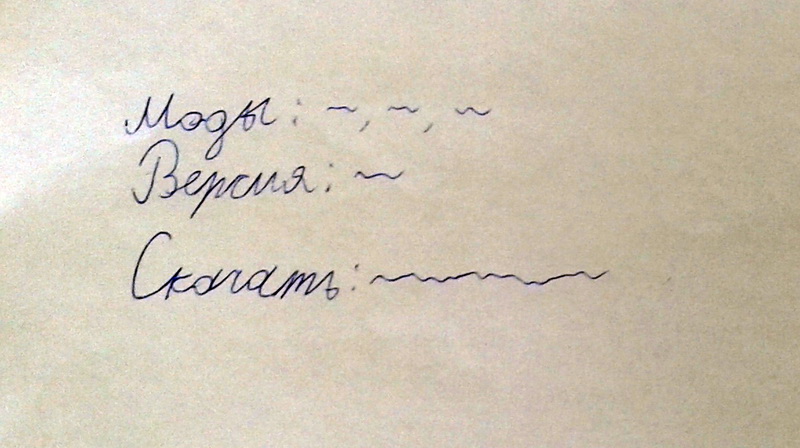 Моды: ~, ~, ~
Версия: ~
Скачать: ~~~~~